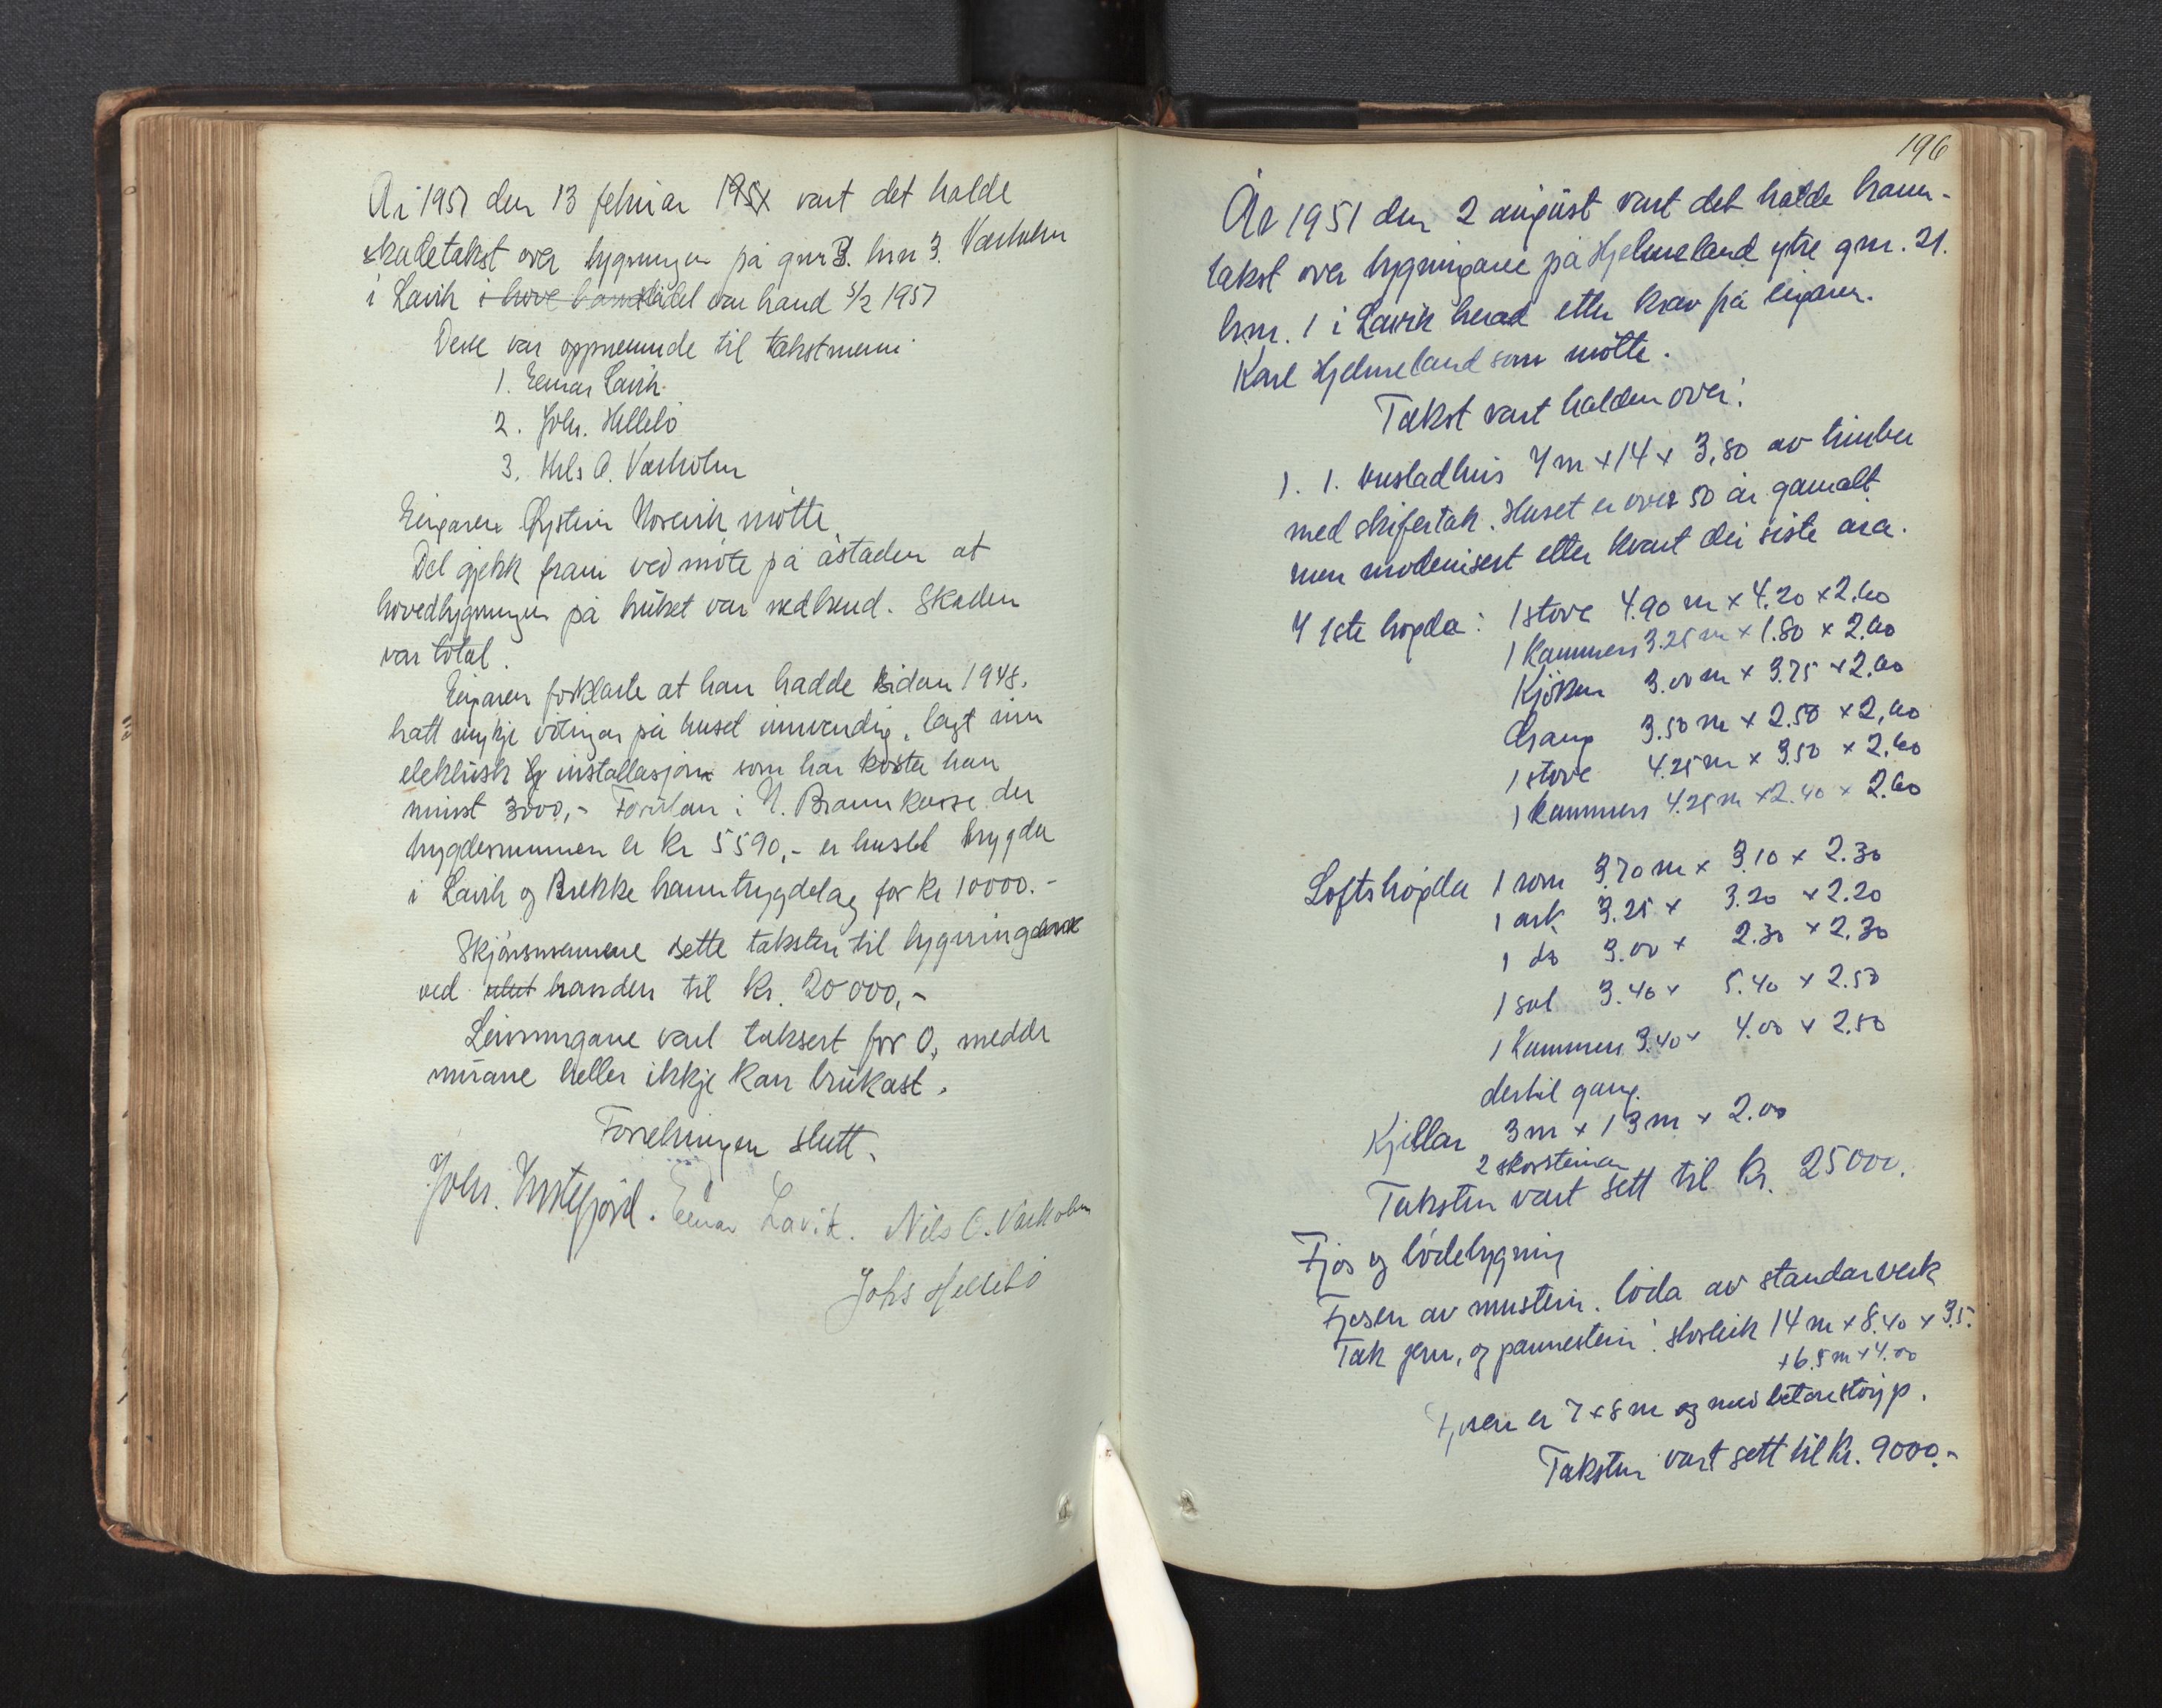 År 1951 den 13 februar vart det halde
skadetakst over bygningen på gnr 3. bnr 3. Værholm
i Lavik var brand 5/2 1951
Desse var oppnemnde til takstmenn.
1. Einar Lavik
2. Johs. Hellebø
3. Nils O. Værholm
Eigaren Øystein møtte
Det gjekk fram ved møte på åstaden at
hovedbygningen på bruket var nedbrend. Skaden
var total.
Eigaren forklarte at han hadde sidan 1948.
hatt mykje vølingar på huset innvendig, lagt inn
elektrisk installasjon som har kosta han
minst 3000,- Forutan i N. Brannkasse der
trygdesummen er kr 5590,- er huset trygda
i Lavik og Brekke branntrygdelag for kr 10000.-
Skjønsmennene sette taksten til bygningane
ved branden til kr. 20000,-
Leivningane vart taksert for 0, medde
murane heller ikkje kan brukast.
Forretningen slutt.
Johs. Einar Lavik. Nils O. Værholm
Johs Hellebø
196
År 1951 den 2 august vart det halde brann-
takst over bygningane på Hjelmeland ytre gnr. 21.
bnr. 1 i Lavik herad etter krav frå eigaren.
Karl Hjelmeland som møtte.
Takst vart halden over:
1. 1. vusladhus 7 m x 14 x 3,80 av timber
med skifertak. Huset er over 50 år gamalt
men modenisert etter kvart dei siste åra.
Y 1ste høgda: 1 stove 4.90 m x 4.20 x 2.60
1 kammers 3.25 m x 1.80 x 2.60
Kjøken 3.00 m x 3.75 x 2.60
Gang 3.50 m x 2.50 x 2,60
1 stove 4.25 m x 3.50 x 2.60
1 kammers 4.25 m x 2.40 x 2.60
Loftshøgda 1 rom 3.70 m x 3.10 x 2.30
1 ark 3.25 x 3.20 x 2.20
1 do 3.00 x 2.30 x 2.30
1 sal 3.40 x 5.40 x 2.50
1 kammers 3.40 x 4.00 x 2.50
dertil gang.
Kjellar 3 m x 13 m x 2.00
2 skorsteinar
Taksten vart sett til kr. 25000.
Fjøs og lødebygning
Fjøsen av murstein. løda av standarverk
Tak jern, og pannestein. storleik 14 m x 8.40 x 3.5.
+ 6.5 m x 4.00
Fjøsen er 7 x 8 m og med betonstøyp.
Taksten vart sett til kr. 9000.-